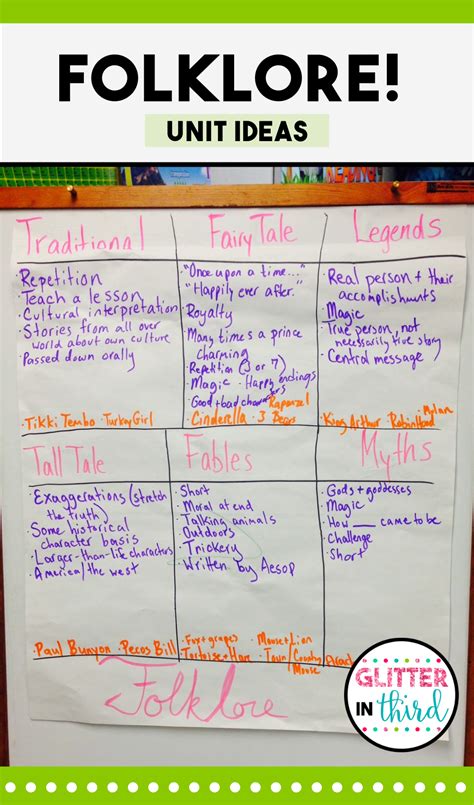 FOLKLORE!
UNIT IDEAS
Traditional
·Repetition
·Teach a lesson
·Cultural interpretation
·Stories from all over
world about own culture
·Passed down orally
·Tikki Tembo ·Turkey Girl
Fairy Tale
·"Once upon a time..."
·"Happily ever after."
·Royalty
·Many times a prince
charming
·Repetition (3 or 7)
·Magic ·Happy endings
·Good + bad characters
·Rapunzel
·Cinderella · 3 Bears
Legends
·Real person + their
accomplishments
·Magic
·True person, not
necessarily true story
·Central message
·King Arthur ·Robinhood
·Mulan
Tall Tale
·Exaggerations (stretch
the truth)
·Some historical
character basis
·Larger-than-life characters
·America/the west
·Paul Bunyon ·Pecos Bill
Fables
·Short
·Moral at end
·Talking animals
·Outdoors
·Trickery
·Written by Aesop
·Fox + grapes ·Mouse + Lion
·Tortoise + Hare ·Town/Country
Mouse
Myths
·Gods + goddesses
·Magic
·How ___ came to be
·Challenge
·Short
Folklore
GLITTER
IN third